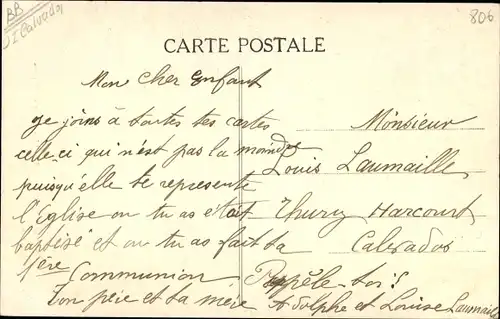 BB
DI Calvados
806
CARTE POSTALE
Mon Cher Enfant
Je joins à toutes tes cartes
celle-ci qui n'est pas la moindre
puisqu'elle te represente
l'Eglise ou tu as était
baptisé et ou tu as fait ta
1ère Communion Rappèle-toi!
Ton père et ta mère Adolphe et Louise Laumaille
Monsieur
Louis Laumaille
Thury Harcourt
Calvados